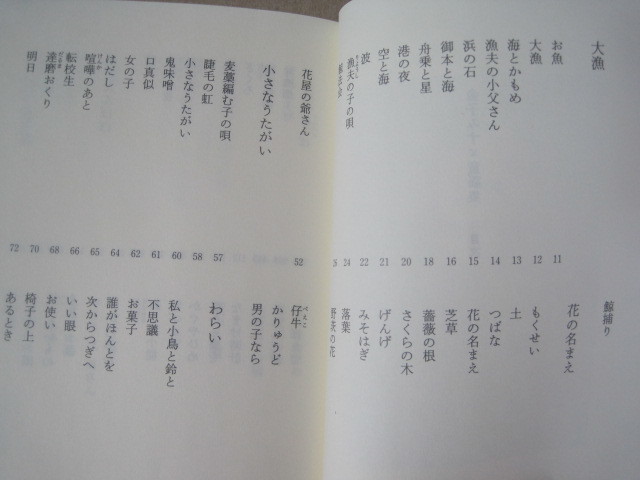 大漁
お魚 11
大漁 12
海とかもめ 13
漁夫の小父さん 14
浜の石 15
御本と海 16
舟乗と星 18
港の夜 20
空と海 21
波 22
漁夫の子の唄 24
鯨捕り
花の名まえ
もくせい
土
つばな
花の名まえ
芝草
薔薇の根
さくらの木
げんげ
みそはぎ
落葉
野茨の花
花屋の爺さん 52
小さなうたがい
麦藁編む子の唄 57
睫毛の虹 58
小さなうたがい 60
鬼味噌 61
口真似 62
女の子 64
はだし 65
喧嘩のあと 66
転校生 68
達磨おくり 70
明日 72
仔牛
かりゅうど
男の子なら
わらい
私と小鳥と鈴と
不思議
お菓子
誰がほんとを
次からつぎへ
いい眼
お使い
椅子の上
あるとき